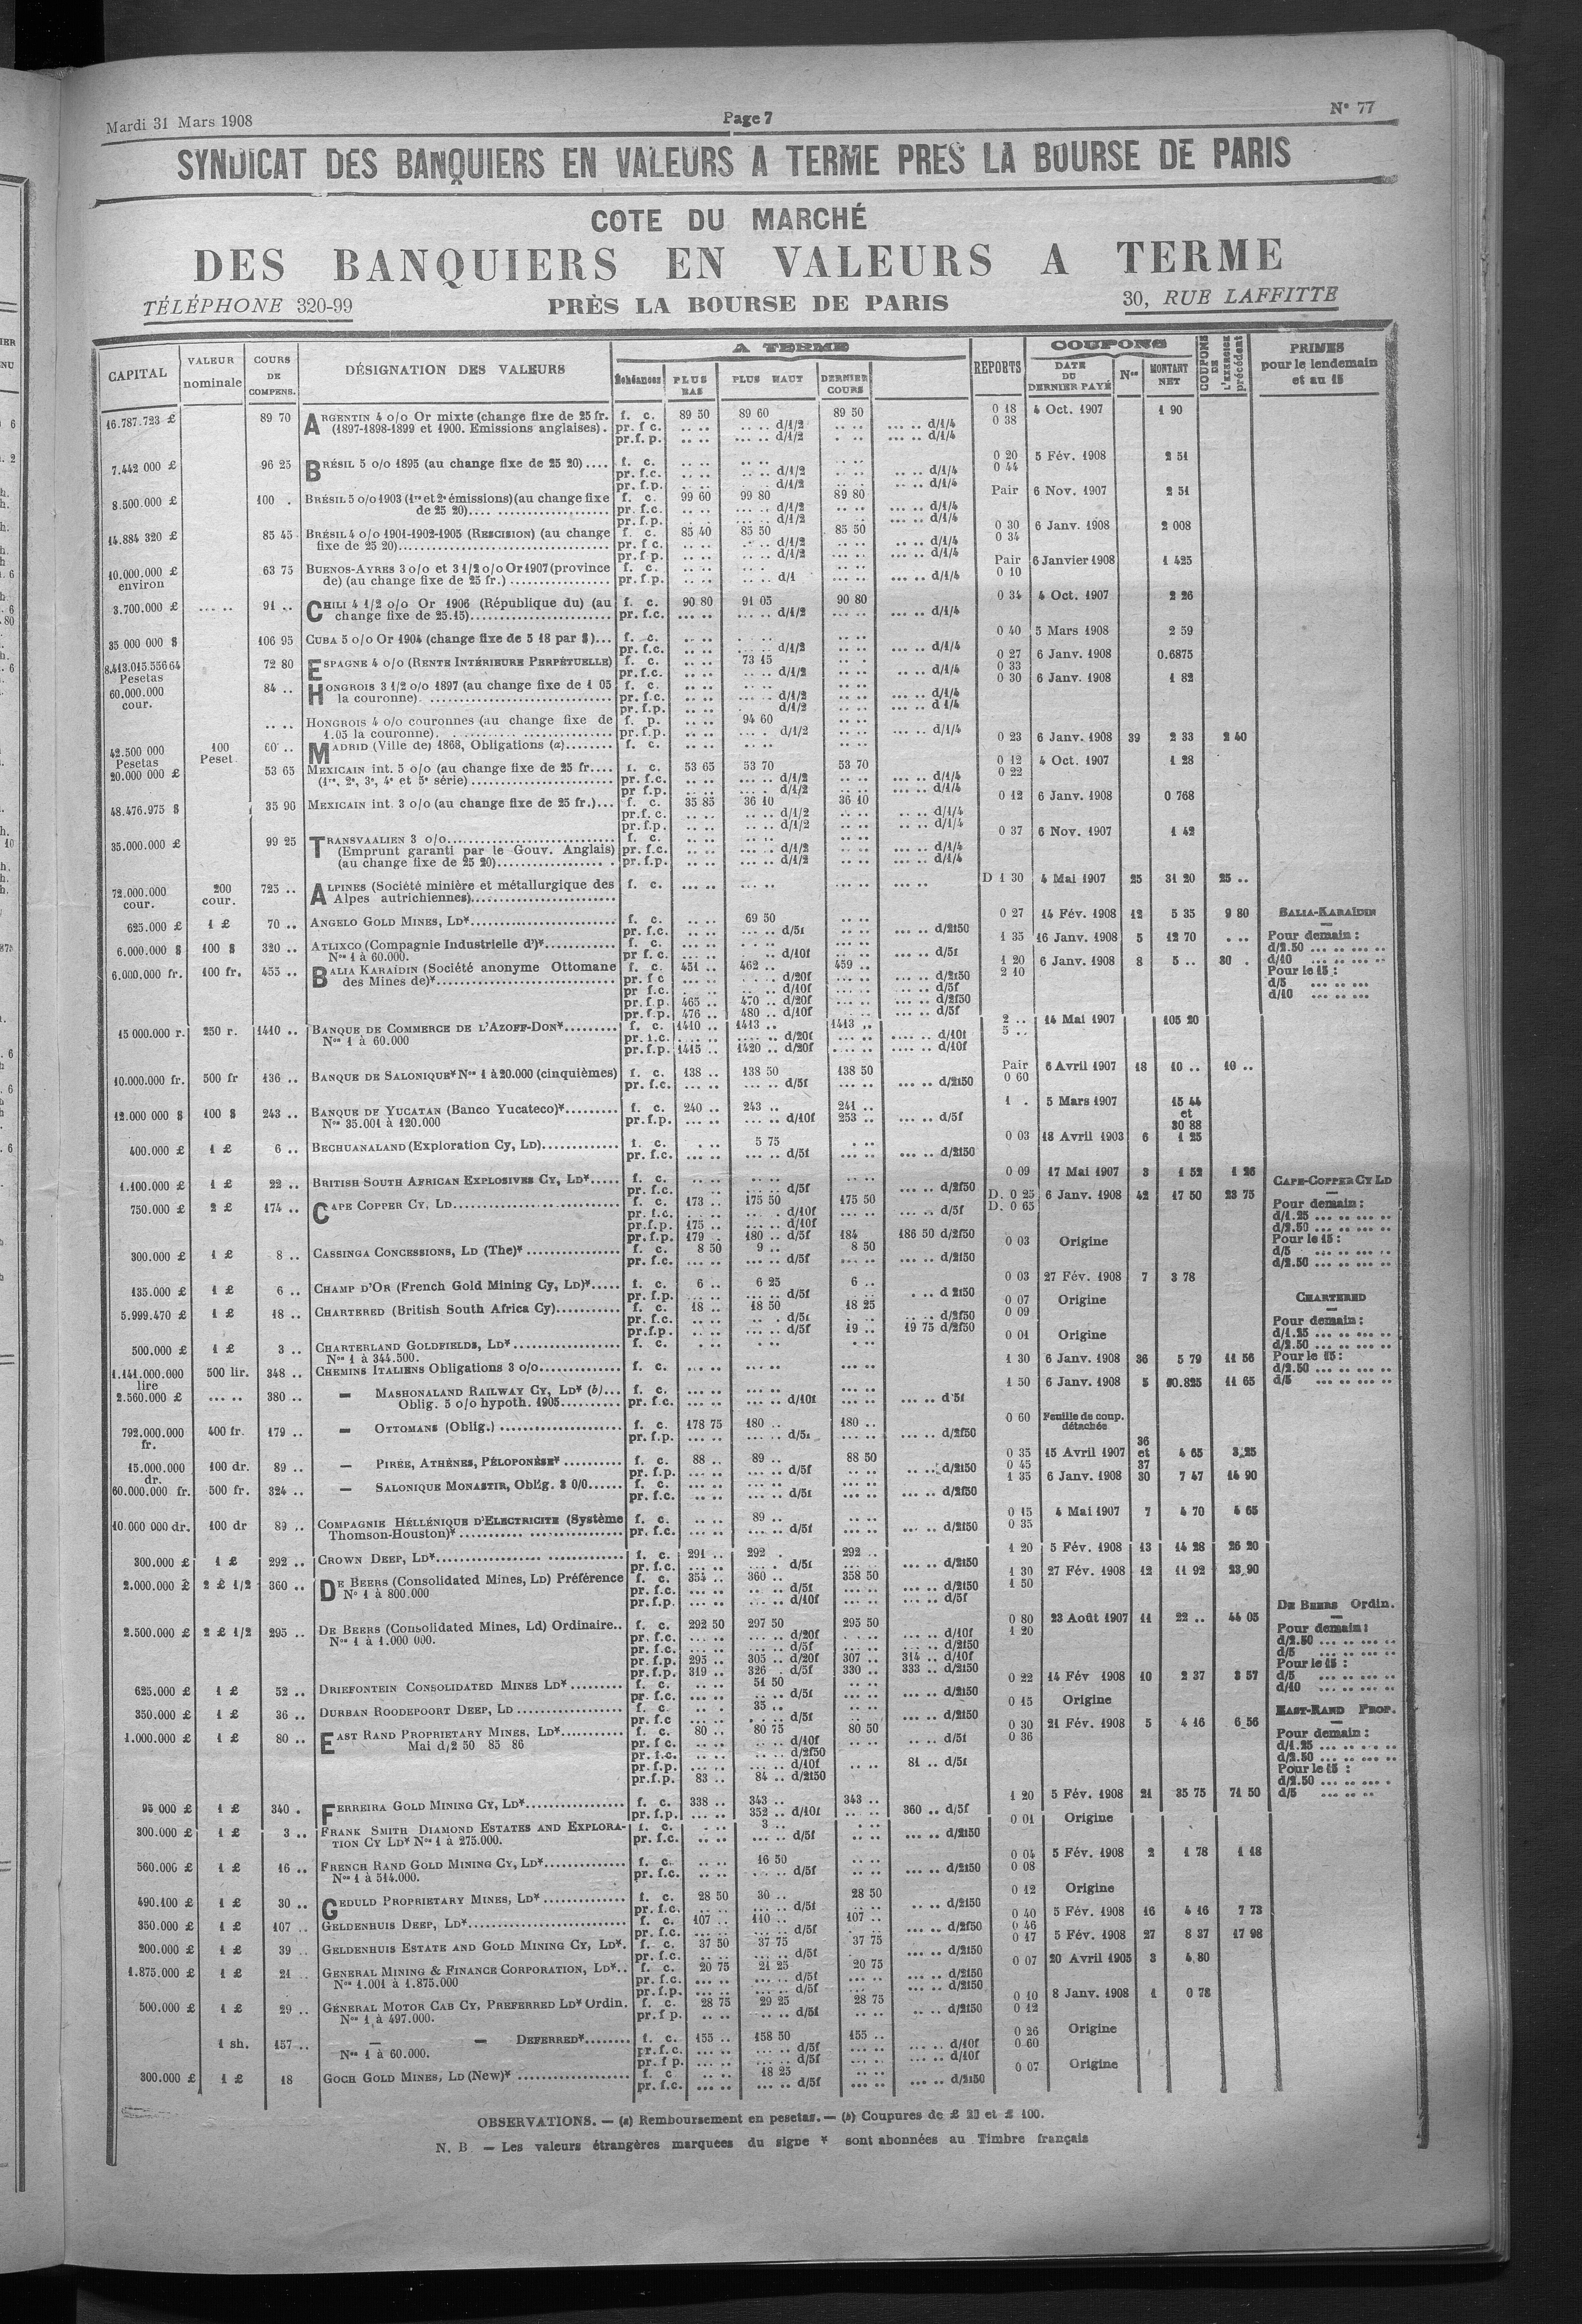 Mardi 31 Mars 1908
Page 7
N° 77
SYNDICAT DES BANQUIERS EN VALEURS A TERME PRES LA BOURSE DE PARIS
COTE DU MARCHÉ
DES BANQUIERS EN VALEURS A TERME
TÉLÉPHONE 320-99 PRÈS LA BOURSE DE PARIS 30, RUE LAFFITTE
CAPITAL VALEUR nominale COURS DE COMPENS. DÉSIGNATION DES VALEURS A TERME Échéances PLUS BAS PLUS HAUT DERNIER COURS REPORTS COUPONS DATE DU DERNIER PAYÉ Nos MONTANT NET COUPONS DE L'EXERCICE précédent PRIMES pour le lendemain et au 15
16.787.723 £ 89 70 ARGENTIN 4 o/o Or mixte (change fixe de 25 fr. f. c. 89 50 89 60 89 50 0 18 4 Oct. 1907 1 90
(1897-1898-1899 et 1900. Emissions anglaises). pr. f c. .. .. .. .. d/1/2 .. .. ... .. d/1/4 0 38
pr.f. p. .. .. ... .. d/1/2 . .. ... .. d/1/4
7.442 000 £ 96 25 BRÉSIL 5 o/o 1895 (au change fixe de 25 20).... f. c. .. .. .. .. .. .. 0 20 5 Fév. 1908 2 51
pr. f.c. .. .. .. .. d/1/2 .. .. .. .. d/1/4 0 44
pr. f.p. .. .. d/1/2 .. .. .. .. d/1/4
8.500.000 £ 100 . BRÉSIL 5 o/o 1903 (1re et 2e émissions) (au change fixe f. c. 99 60 99 80 89 80 Pair 6 Nov. 1907 2 51
de 25 20).... pr. f.c. .. .. ... .. d/1/2 .. .. ... .. d/1/4
pr. f.p. .. .. d/1/2 .. .. ... .. d/1/4
14.884 320 £ 85 45 BRÉSIL 4 o/o 1901-1902-1905 (RESCISION) (au change f. c. 85 40 85 50 85 50 0 30 6 Janv. 1908 2 008
fixe de 25 20).... pr. f c. .. .. .. .. d/1/2 .. .. .. .. d/1/4 0 34
pr. f p. .. .. ... .. d/1/2 .. .. ... .. d/1/4
10.000.000 £ environ 63 75 BUENOS-AYRES 3 o/o et 3 1/2 o/o Or 1907 (province f. c. .. .. .. . .. .. Pair 6 Janvier 1908 1 425
de) (au change fixe de 25 fr.) .... pr. f.p. .. .. .. .. d/1 .. .. ... .. d/1/4 0 10
3.700.000 £ ... .. 91 .. CHILI 4 1/2 o/o Or 1906 (République du) (au f. c. 90 80 91 05 90 80 0 34 4 Oct. 1907 2 26
change fixe de 25.15).... pr. f.c. ... .. ... .. d/1/2 ... .. ... .. d/1/4
35 000 000 $ 106 95 CUBA 5 o/o Or 1904 (change fixe de 5 18 par $)... f. c. .. .. .. .. .. .. 0 40 5 Mars 1908 2 59
pr. f.c. .. .. ... .. d/1/2 .. .. ... .. d/1/4
8.413.015.556 64 Pesetas 72 80 ESPAGNE 4 o/o (RENTE INTÉRIEURE PERPÉTUELLE) f. c. .. .. 73 15 .. . 0 27 6 Janv. 1908 0.6875
pr. f.c. .. .. .. .. d/1/2 .. .. .. .. d/1/4 0 33
60.000.000 cour. 84 .. HONGROIS 3 1/2 o/o 1897 (au change fixe de 1 05 f. c. .. .. .. .. .. .. 0 30 6 Janv. 1908 1 82
la couronne). .... pr. f.c. .. .. ... .. d/1/2 .. .. ... .. d/1/4
pr. f.p. .. .. d/1/2 .. .. ... .. d 1/4
.. .. HONGROIS 4 o/o couronnes (au change fixe de f. p. .. .. 94 60 .. ..
1.05 la couronne). .... pr. f.p. .. .. ... . d/1/2 .. .. ... .. d/1/4
42.500 000 Pesetas 100 Peset. 60 .. MADRID (Ville de) 1868, Obligations (a)........ f. c. .. .. .. .. .. .. 0 23 6 Janv. 1908 39 2 33 2 40
20.000 000 £ 53 65 MEXICAIN int. 5 o/o (au change fixe de 25 fr.... f. c. 53 65 53 70 53 70 0 12 4 Oct. 1907 1 28
(1re, 2e, 3e, 4e et 5e série).... pr. f.c. .. .. ... .. d/1/2 .. .. ... .. d/1/4 0 22
pr f.p. .. .. ... .. d/1/2 .. .. ... .. d/1/4
48.476.975 $ 35 90 MEXICAIN int. 3 o/o (au change fixe de 25 fr.)... f. c. 35 85 36 10 36 10 0 12 6 Janv. 1908 0 768
pr.f. c. .. .. .. .. d/1/2 .. .. .. .. d/1/4
pr.f.p. .. .. .. .. d/1/2 .. .. .. .. d/1/4
35.000.000 £ 99 25 TRANSVAALIEN 3 o/o.... f. c. .. .. .. .. .. .. 0 37 6 Nov. 1907 1 42
(Emprunt garanti par le Gouv. Anglais) pr. f.c. .. .. ... .. d/1/2 .. .. ... .. d/1/4
(au change fixe de 25 20).... pr. f.p. .. .. ... .. d/1/2 .. .. ... .. d/1/4
72.000.000 cour. 200 cour. 725 .. ALPINES (Société minière et métallurgique des f. c. ... .. ... .. ... .. ... .. D 1 30 4 Mai 1907 25 31 20 25 ..
Alpes autrichiennes)....
625.000 £ 1 £ 70 .. ANGELO GOLD MINES, LD*.... f. c. .. .. 69 50 .. .. 0 27 14 Fév. 1908 12 5 35 9 80 BALIA-KARAÏDIN
pr. f.c. .. .. ... .. d/5f .. .. ... .. d/2f50
6.000.000 $ 100 $ 320 .. ATLIXCO (Compagnie Industrielle d')*.... f. c. ... .. . .. ... .. 1 35 16 Janv. 1908 5 12 70 . .. Pour demain :
Nos 1 à 60.000. pr f. c. ... .. .. .. d/10f ... .. ... .. d/5f d/2.50 ... .. ... ..
6.000.000 fr. 100 fr. 455 .. BALIA KARAÏDIN (Société anonyme Ottomane f. c. 451 .. 462 .. 459 .. 1 20 6 Janv. 1908 8 5 .. 30 . d/10 ... .. ... ..
des Mines de)*.... pr. f c ... .. ... .. d/20f ... .. ... .. d/2f50 2 10 Pour le 15 :
pr f.c. . .. .. .. d/10f ... .. ... .. d/5f d/5 ... .. ...
pr. f.p. 465 .. 470 .. d/20f ... .. ... .. d/2f50 d/10 ... .. ...
pr. f.p. 476 .. 480 .. d/10f ... .. ... .. d/5f
15 000.000 r. 250 r. 1410 .. BANQUE DE COMMERCE DE L'AZOFF-DON*.... f. c. 1410 .. 1413 .. 1413 .. 2 .. 14 Mai 1907 105 20
Nos 1 à 60.000 pr. f.c. .... .. .... .. d/20f .... .. .... .. d/10f 5 ..
pr. f.p. 1415 .. 1420 .. d/20f .... .. .... .. d/10f
10.000.000 fr. 500 fr 136 .. BANQUE DE SALONIQUE* Nos 1 à 20.000 (cinquièmes) f. c. 138 .. 138 50 138 50 Pair 6 Avril 1907 18 10 .. 10 ..
pr. f.c. ... .. ... .. d/5f ... .. ... .. d/2f50 0 60
12.000 000 $ 100 $ 243 .. BANQUE DE YUCATAN (Banco Yucateco)*.... f. c. 240 .. 243 .. 241 .. 1 . 5 Mars 1907 15 44
Nos 35.001 à 120.000 pr.f.p. ... .. ... .. d/10f 253 .. ... .. d/5f et 30 88
400.000 £ 1 £ 6 .. BECHUANALAND (Exploration Cy, LD).... f. c. . .. 5 75 . .. 0 03 18 Avril 1903 6 1 25
pr. f.c. ... .. ... .. d/5f ... .. ... .. d/2f50
1.100.000 £ 1 £ 22 .. BRITISH SOUTH AFRICAN EXPLOSIVES CY, LD*..... f. c. .. .. .. .. .. .. 0 09 17 Mai 1907 3 1 52 1 26 CAPE-COPPER CY LD
pr. f.c. .. ... .. d/5f .. .. ... .. d/2f50
750.000 £ 2 £ 174 .. CAPE COPPER CY, LD.... f. c. 173 .. 175 50 175 50 D. 0 25 6 Janv. 1908 42 17 50 23 75 Pour demain :
pr. f.c. ... .. .. . d/10f ... .. ... .. d/5f D. 0 65 d/1.25 ... .. ... ..
pr.f.p. 175 .. ... .. d/10f d/2.50 ... .. ... ..
pr. f.p. 179 . 180 .. d/5f 184 186 50 d/2f50 Pour le 15 :
300.000 £ 1 £ 8 .. CASSINGA CONCESSIONS, LD (The)* .... f. c. 8 50 9 .. 8 50 0 03 Origine d/5 ... .. ... ..
pr. f.c. ... .. ... .. d/5f ... .. ... .. d/2f50 d/2.50 ... .. ... ..
135.000 £ 1 £ 6 .. CHAMP D'OR (French Gold Mining Cy, LD)*..... f. c. 6 .. 6 25 6 .. 0 03 27 Fév. 1908 7 3 78
pr. f.p. .. .. ... .. d/5f .. .. . .. d 2f50
5.999.470 £ 1 £ 18 .. CHARTERED (British South Africa Cy).... f. c. 18 .. 18 50 18 25 0 07 Origine CHARTERED
pr. f.c. .. .. .. . d/5f .. .. .. .. d/2f50 0 09 Pour demain :
pr.f.p. .. .. ... .. d/5f 19 .. 19 75 d/2f50 d/1.25 ... .. ... ..
500.000 £ 1 £ 3 .. CHARTERLAND GOLDFIELDS, LD*.... f. c. . .. . .. . .. 0 01 Origine d/2.50 ... .. ... ..
Nos 1 à 344.500. Pour le 15 :
1.141.000.000 lire 500 lir. 348 .. CHEMINS ITALIENS Obligations 3 o/o.... f. c. ... .. ... .. ... .. 1 30 6 Janv. 1908 36 5 79 11 56 d/2.50 ... .. ... ..
2.560.000 £ ... .. 380 .. — MASHONALAND RAILWAY CY, LD* (b)... f. c. ... .. ... .. ... .. 1 50 6 Janv. 1908 5 10.825 11 65 d/5 ... .. ... ..
Oblig. 5 o/o hypoth. 1905.... pr. f.c. ... .. ... .. d/10f ... .. ... .. d 5f
792.000.000 fr. 400 fr. 179 .. — OTTOMANS (Oblig.) .... f. c. 178 75 180 .. 180 .. 0 60 Feuille de coup. détachée
pr. f.p. ... .. ... .. d/5f ... .. ... .. d/2f50
15.000.000 dr. 100 dr. 89 .. — PIRÉE, ATHÈNES, PÉLOPONÈSE* .... f. c. 88 .. 89 .. 88 50 0 35 15 Avril 1907 36 et 37 4 65 3 25
pr. f.p. ... .. ... .. d/5f .. .. .. .. d/2f50 0 45
60.000.000 fr. 500 fr. 324 .. — SALONIQUE MONASTIR, Oblig. 3 0/0...... f. c. .. .. ... .. ... .. 1 35 6 Janv. 1908 30 7 47 14 90
pr. f.c. .. .. ... .. d/5f ... .. ... .. d/2f50
10.000 000 dr. 100 dr 89 .. COMPAGNIE HÉLLÉNIQUE D'ELECTRICITE (Système f. c. .. .. 89 .. .. .. 0 15 4 Mai 1907 7 4 70 4 65
Thomson-Houston)* .... pr. f.c. ... .. ... .. d/5f ... .. ... .. d/2f50 0 35
300.000 £ 1 £ 292 .. CROWN DEEP, LD*.... f. c. 291 .. 292 . 292 .. 1 20 5 Fév. 1908 13 14 28 26 20
pr. f.c. ... .. ... . d/5f ... .. ... .. d/2f50
2.000.000 £ 2 £ 1/2 360 .. DE BEERS (Consolidated Mines, LD) Préférence f. c. 354 .. 360 .. 358 50 1 30 27 Fév. 1908 12 11 92 23,90
N° 1 à 800.000 pr. f.c. ... .. .. .. d/5f ... .. ... .. d/2f50 1 50
pr. f.p. ... .. ... .. d/10f ... .. ... .. d/5f DE BEERS Ordin.
2.500.000 £ 2 £ 1/2 295 .. DE BEERS (Consolidated Mines, Ld) Ordinaire.. f. c. 292 50 297 50 295 50 0 80 23 Août 1907 11 22 .. 44 05
Nos 1 à 1.000 000. pr. f.c. ... .. ... .. d/20f . . .. ... .. d/10f 1 20 Pour demain :
pr. f.c. ... .. ... .. d/5f ... .. ... .. d/2f50 d/2.50 ... .. ... ..
pr. f.p. 295 .. 305 .. d/20f 307 .. 314 .. d/10f d/5 ... .. ... ..
pr. f.p. 319 .. 326 . d/5f 330 .. 333 .. d/2f50 Pour le 15 :
625.000 £ 1 £ 52 .. DRIEFONTEIN CONSOLIDATED MINES LD* .... f. c. .. .. 51 50 .. .. 0 22 14 Fév 1908 10 2 37 3 57 d/5 ... .. ... ..
pr. f.c. ... .. .. .. d/5f ... .. ... .. d/2f50 d/10 ... .. ... ..
350.000 £ 1 £ 36 .. DURBAN ROODEPOORT DEEP, LD .... f. c. .. . 35 .. .. .. 0 15 Origine EAST-RAND PROP.
pr. f.c .. .. . . .. d/5f .. .. ... .. d/2f50
1.000.000 £ 1 £ 80 .. EAST RAND PROPRIETARY MINES, LD*.... f. c. 80 .. 80 75 80 50 0 30 21 Fév. 1908 5 4 16 6 56 Pour demain :
Mai d/2 50 85 86 pr. f c. .. .. ... .. d/10f .. .. ... .. d/5f 0 36 d/1.25 ... .. ... ..
pr. f.c. .. .. ... .. d/2f50 d/2.50 ... .. ... ..
pr. f.p. .. .. ... .. d/10f .. .. 81 .. d/5f Pour le 15 :
pr.f.p. 83 .. 84 .. d/2f50 d/2.50 ... .. ... .
95 000 £ 1 £ 340 . FERREIRA GOLD MINING CY, LD*.... f. c. 338 .. 343 .. 343 .. 1 20 5 Fév. 1908 21 35 75 71 50 d/5 ... .. ..
pr. f.p. ... .. 352 .. d/10f .. .. 360 .. d/5f
300.000 £ 1 £ 3 .. FRANK SMITH DIAMOND ESTATES AND EXPLORA- f. c. . .. 3 .. . .. 0 01 Origine
TION CY LD* Nos 1 à 275.000. pr. f.c. .. .. ... .. d/5f .. .. ... .. d/2f50
560.000 £ 1 £ 16 .. FRENCH RAND GOLD MINING CY, LD*.... f. c. .. .. 16 50 .. .. 0 04 5 Fév. 1908 2 1 78 1 18
Nos 1 à 514.000. pr. f.c. .. .. .. .. d/5f .. .. ... .. d/2f50 0 08
490.100 £ 1 £ 30 .. GEDULD PROPRIETARY MINES, LD* .... f. c. 28 50 30 .. 28 50 0 12 Origine
pr. f.c. .. .. ... .. d/5f .. .. .. .. d/2f50
350.000 £ 1 £ 107 .. GELDENHUIS DEEP, LD*.... f. c. 107 .. 110 .. 107 .. 0 40 5 Fév. 1908 16 4 16 7 73
pr. f.c. ... .. ... .. d/5f . .. ... .. d/2f50 0 46
200.000 £ 1 £ 39 .. GELDENHUIS ESTATE AND GOLD MINING CY, LD*. f. c. 37 50 37 75 37 75 0 17 5 Fév. 1908 27 8 37 17 98
pr. f.c. .. .. ... .. d/5f .. .. ... .. d/2f50
1.875.000 £ 1 £ 21 .. GENERAL MINING & FINANCE CORPORATION, LD*.. f. c. 20 75 21 25 20 75 0 07 20 Avril 1905 3 4,80
Nos 1.001 à 1.875.000 pr. f.c. ... .. ... .. d/5f ... .. ... .. d/2f50
pr. f.p. ... .. ... .. d/5f ... .. ... .. d/2f50
500.000 £ 1 £ 29 .. GÉNÉRAL MOTOR CAB CY, PREFERRED LD* Ordin. f. c. 28 75 29 25 28 75 0 10 8 Janv. 1908 1 0 78
Nos 1 à 497.000. pr.f p. .. .. .. .. d/5f .. .. .. .. d/2f50 0 12
1 sh. 157 .. — — DEFERRED*........ f. c. 155 .. 158 50 155 .. 0 26 Origine
Nos 1 à 60.000. pr.f.c. ... .. ... .. d/5f ... .. ... .. d/10f 0 60
pr. f p. ... .. ... .. d/5f ... .. ... .. d/10f
300.000 £ 1 £ 18 GOCH GOLD MINES, LD (New)* .... f. c .. .. 18 25 .. .. 0 07 Origine
pr. f.c. ... .. ... .. d/5f ... .. ... .. d/2f50
OBSERVATIONS. — (a) Remboursement en pesetas. — (b) Coupures de £ 20 et £ 100.
N. B — Les valeurs étrangères marquees du signe * sont abonnées au Timbre français